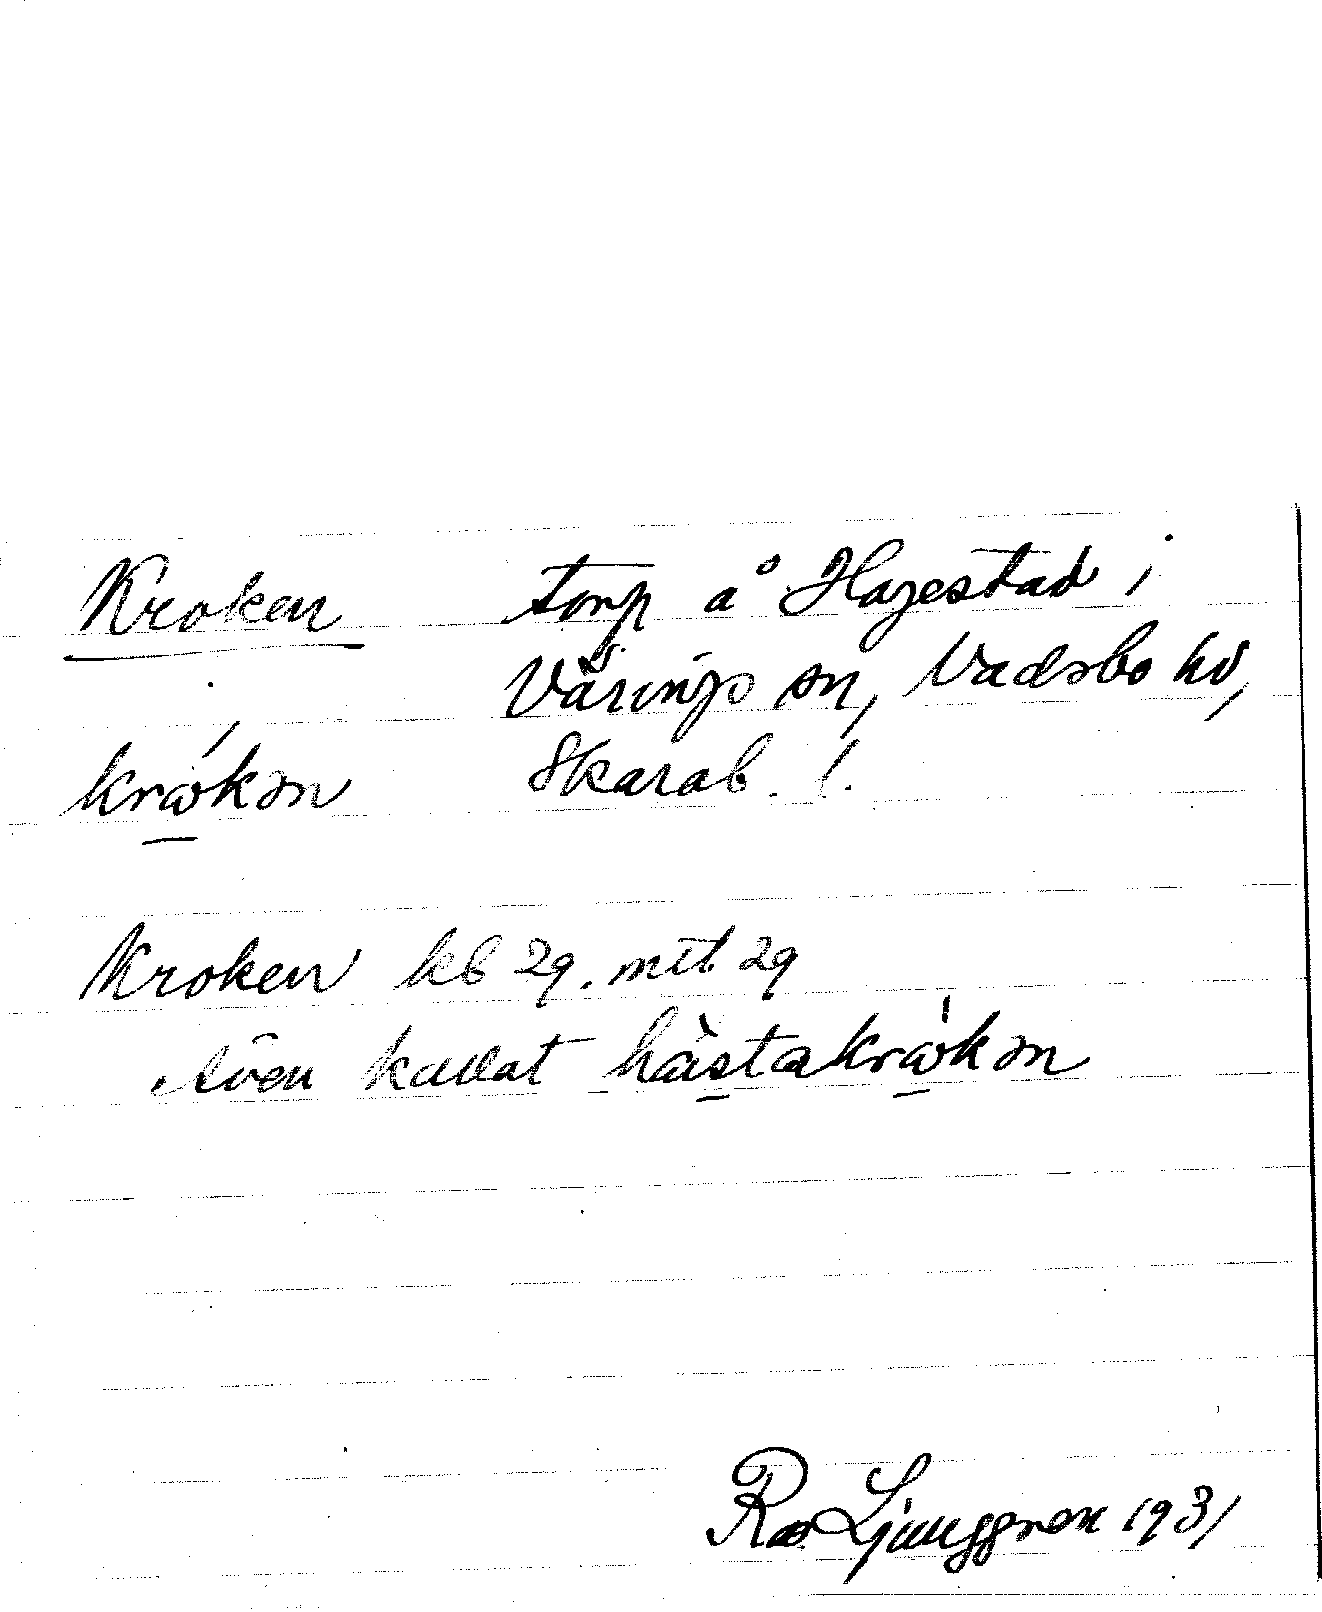 Kroken torp å Hagestad i
Värings sn, Vadsbo hd,
krωkən Skarab. l.
Kroken kb 29. mtl 29
även kallat hästakrωkən
R. Ljunggren 1931